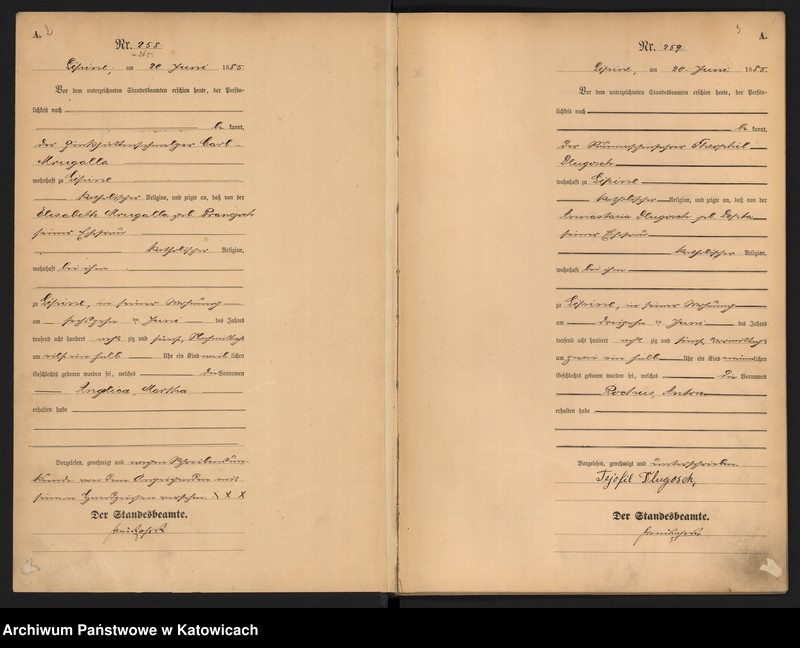 A. 2
Nr. 258
Lipine, am 20 Juni 1885.
Vor dem unterzeichneten Standesbeamten erschien heute, der Persön-
lichkeit nach
be kannt,
der Zinkhüttenschmelzer Carl
Mrugalla
wohnhaft zu Lipine
katholischer Religion, und zeigte an, daß von der
Elisabeth Mrugalla geb
seiner Ehefrau
katholischer Religion,
wohnhaft bei ihm
zu Lipine, in seiner Wohnung
am sechszehn ten Juni des Jahres
tausend acht hundert acht zig und fünf, Nachmittags
um elf ein halb Uhr ein Kind weib lichen
Geschlechts geboren worden sei, welches die Vornamen
Angelica, Martha
erhalten habe
Vorgelesen, genehmigt und wegen Schreibensun-
kunde von dem Anzeigenden mit
seinem Handzeichen versehen X X X
Der Standesbeamte.
3 A.
Nr. 259
Lipine, am 20. Juni 1885.
Vor dem unterzeichneten Standesbeamten erschien heute, der Persön-
lichkeit nach
be kannt,
der Theophil
Dlugosch
wohnhaft zu Lipine
katholischer Religion, und zeigte an, daß von der
Annastasia Dlugosch geb
seiner Ehefrau
katholischer Religion,
wohnhaft bei ihm
zu Lipine, in seiner Wohnung
am dreizehn ten Juni des Jahres
tausend acht hundert acht zig und fünf, Vormittags
um zwei ein halb Uhr ein Kind männlichen
Geschlechts geboren worden sei, welches die Vornamen
Rochus, Anton
erhalten habe
Vorgelesen, genehmigt und unterschrieben
Tejofil Dlugosch,
Der Standesbeamte.
Archiwum Państwowe w Katowicach